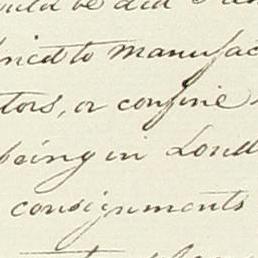 ould be did
nied to manufac
tors, or confine
being in Lond
consignments